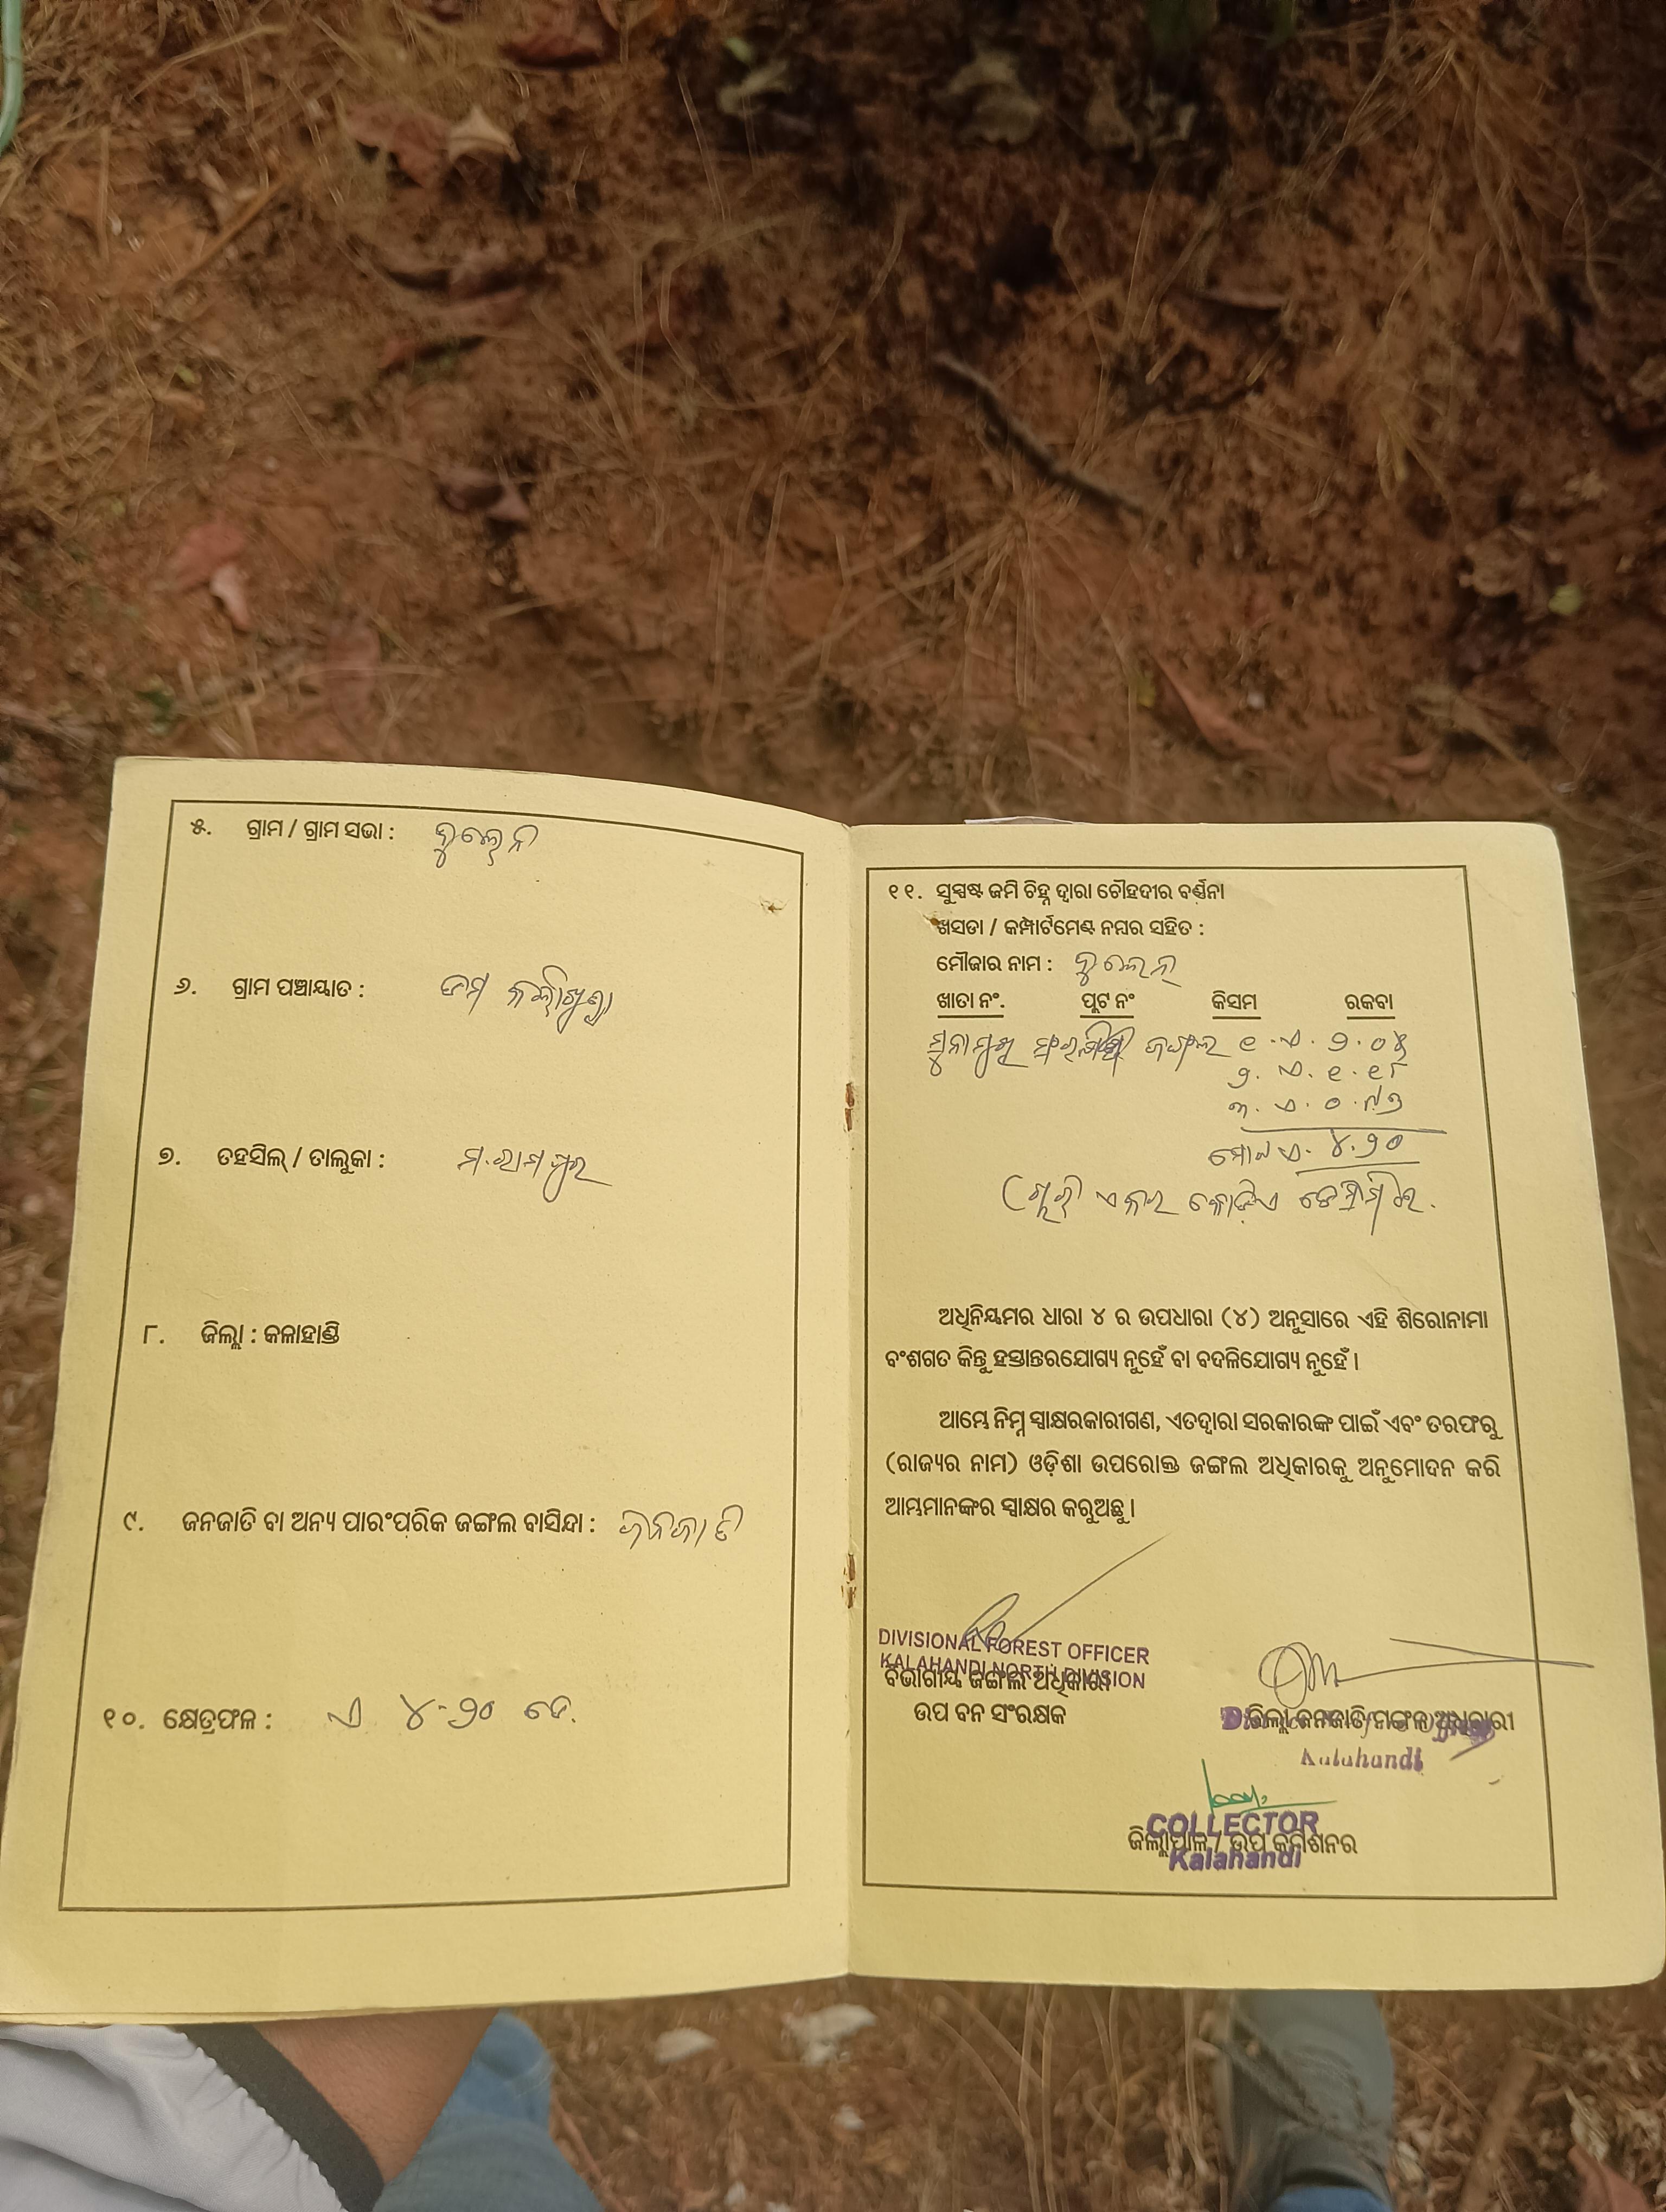 ୫. ଗ୍ରାମ / ଗ୍ରାମ ସଭା :
୬. ଗ୍ରାମ ପଞ୍ଚାୟାତ :
୭. ତହସିଲ୍ / ତାଲୁକା : ମ.ରାମପୁର
୮. ଜିଲ୍ଲା : କଳାହାଣ୍ଡି
୯. ଜନଜାତି ବା ଅନ୍ୟ ପାରଂପରିକ ଜଙ୍ଗଲ ବାସିନ୍ଦା : ଜନଜାତି
୧୦. କ୍ଷେତ୍ରଫଳ : ଏ ୪-୨୦ ଡେ.
୧୧. ସୁସ୍ପଷ୍ଟ ଜମି ଚିହ୍ନ ଦ୍ୱାରା ଚୌହଦୀର ବର୍ଣ୍ଣନା
ଖସଡା / କମ୍ପାର୍ଟମେଣ୍ଟ ନମ୍ବର ସହିତ :
ମୌଜାର ନାମ :
ଖାତା ନଂ. ପ୍ଲଟ ନଂ କିସମ ରକବା
ଜଙ୍ଗଲ ୧.ଏ.୨.୦୫
୨.ଏ.୧.୧୮
୩.ଏ.୦.୯୭
ମୋଟ ଏ. ୪.୨୦
(ଚାରି ଏକର କୋଡ଼ିଏ ଡେସିମିଲ.
ଅଧିନିୟମର ଧାରା ୪ ର ଉପଧାରା (୪) ଅନୁସାରେ ଏହି ଶିରୋନାମା
ବଂଶଗତ କିନ୍ତୁ ହସ୍ତାନ୍ତରଯୋଗ୍ୟ ନୁହେଁ ବା ବଦଳିଯୋଗ୍ୟ ନୁହେଁ ।
ଆମ୍ଭେ ନିମ୍ନ ସ୍ୱାକ୍ଷରକାରୀଗଣ, ଏତଦ୍ୱାରା ସରକାରଙ୍କ ପାଇଁ ଏବଂ ତରଫରୁ
(ରାଜ୍ୟର ନାମ) ଓଡ଼ିଶା ଉପରୋକ୍ତ ଜଙ୍ଗଲ ଅଧିକାରକୁ ଅନୁମୋଦନ କରି
ଆମ୍ଭମାନଙ୍କର ସ୍ୱାକ୍ଷର କରୁଅଛୁ ।
DIVISIONAL FOREST OFFICER
KALAHANDI NORTH DIVISION
ବିଭାଗୀୟ ଜଙ୍ଗଲ ଅଧିକାରୀ
ଉପ ବନ ସଂରକ୍ଷକ
ଜିଲ୍ଲା ଜନଜାତି ମଙ୍ଗଳ ଅଧିକାରୀ
Kalahandi
COLLECTOR
ଜିଲ୍ଲାପାଳ / ଉପ କମିଶନର
Kalahandi